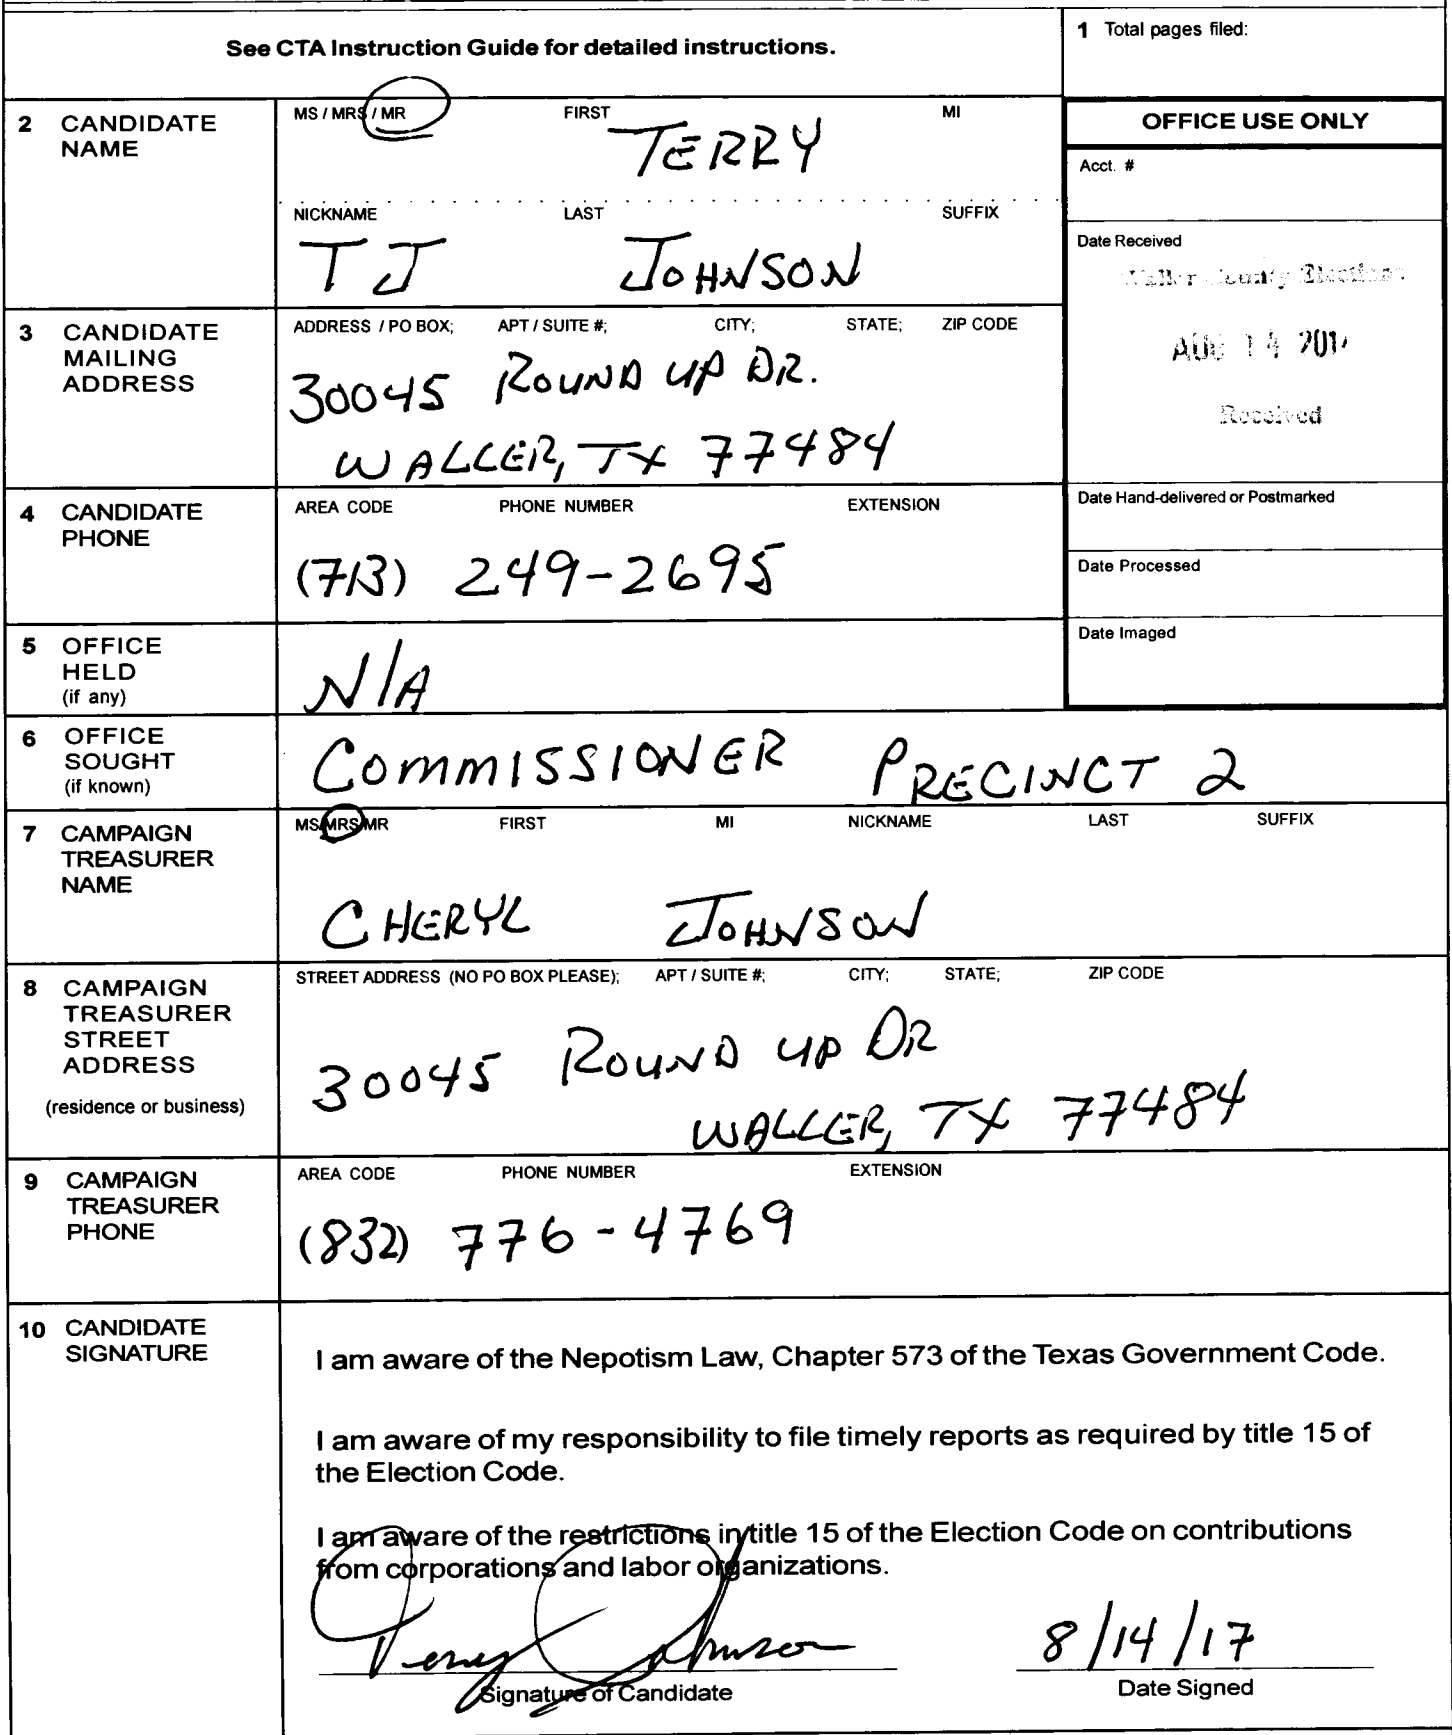 See CTA Instruction Guide for detailed instructions.
1 Total pages filed:
2 CANDIDATE NAME
MS / MRS / MR FIRST MI
TERRY
NICKNAME LAST SUFFIX
T J JOHNSON
OFFICE USE ONLY
Acct. #
Date Received
Waller County Elections
AUG 14 2017
Received
Date Hand-delivered or Postmarked
Date Processed
Date Imaged
3 CANDIDATE MAILING ADDRESS
ADDRESS / PO BOX; APT / SUITE #; CITY; STATE; ZIP CODE
30045 ROUND UP DR.
WALLER, TX 77484
4 CANDIDATE PHONE
AREA CODE PHONE NUMBER EXTENSION
(713) 249-2695
5 OFFICE HELD (if any)
N/A
6 OFFICE SOUGHT (if known)
COMMISSIONER PRECINCT 2
7 CAMPAIGN TREASURER NAME
MS/MRS/MR FIRST MI NICKNAME LAST SUFFIX
CHERYL JOHNSON
8 CAMPAIGN TREASURER STREET ADDRESS
(residence or business)
STREET ADDRESS (NO PO BOX PLEASE); APT / SUITE #; CITY; STATE; ZIP CODE
30045 ROUND UP DR
WALLER, TX 77484
9 CAMPAIGN TREASURER PHONE
AREA CODE PHONE NUMBER EXTENSION
(832) 776-4769
10 CANDIDATE SIGNATURE
I am aware of the Nepotism Law, Chapter 573 of the Texas Government Code.
I am aware of my responsibility to file timely reports as required by title 15 of
the Election Code.
I am aware of the restrictions in title 15 of the Election Code on contributions
from corporations and labor organizations.
Terry Johnson
8/14/17
Signature of Candidate
Date Signed